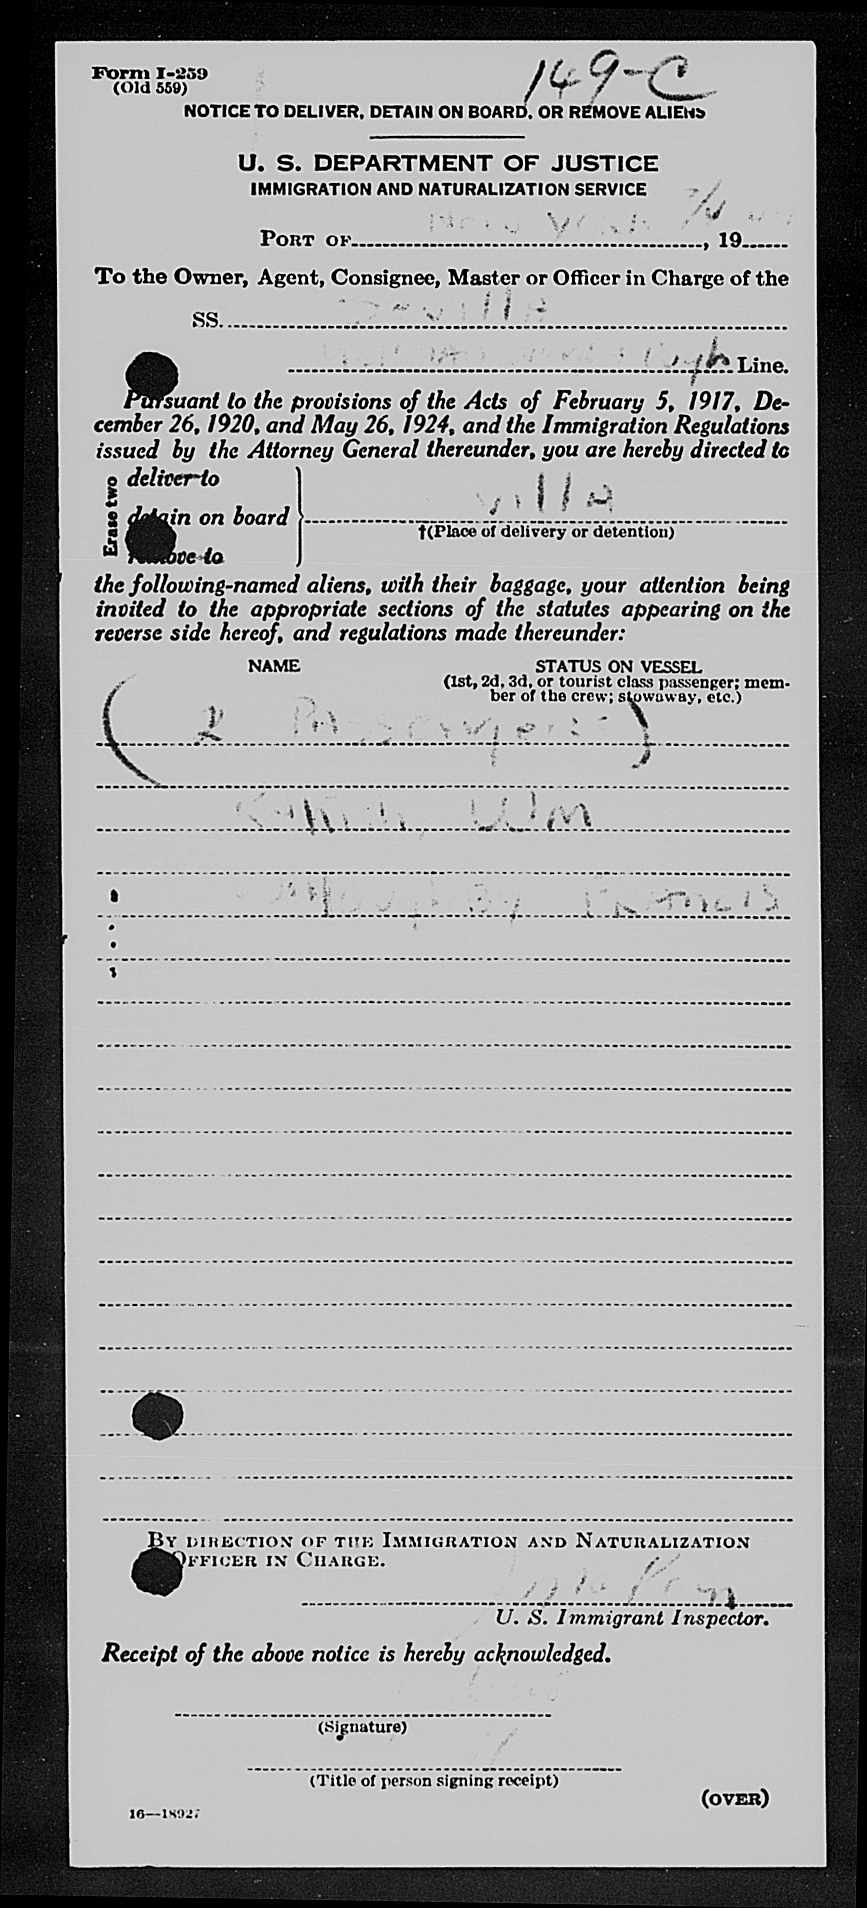 Form I-259
(Old 559)
149-C
NOTICE TO DELIVER, DETAIN ON BOARD, OR REMOVE ALIENS
U. S. DEPARTMENT OF JUSTICE
IMMIGRATION AND NATURALIZATION SERVICE
PORT OF New York, 19
To the Owner, Agent, Consignee, Master or Officer in Charge of the
SS.
Line.
Pursuant to the provisions of the Acts of February 5, 1917, De-
cember 26, 1920, and May 26, 1924, and the Immigration Regulations
issued by the Attorney General thereunder, you are hereby directed to
Erase two
deliver to
detain on board
remove to
villa
†(Place of delivery or detention)
the following-named aliens, with their baggage, your attention being
invited to the appropriate sections of the statutes appearing on the
reverse side hereof, and regulations made thereunder:
NAME STATUS ON VESSEL
(1st, 2d, 3d, or tourist class passenger; mem-
ber of the crew; stowaway, etc.)
(2 Passengers)
Wm
Francis
BY DIRECTION OF THE IMMIGRATION AND NATURALIZATION
OFFICER IN CHARGE.
U. S. Immigrant Inspector.
Receipt of the above notice is hereby acknowledged.
(Signature)
(Title of person signing receipt)
(OVER)
16—18927